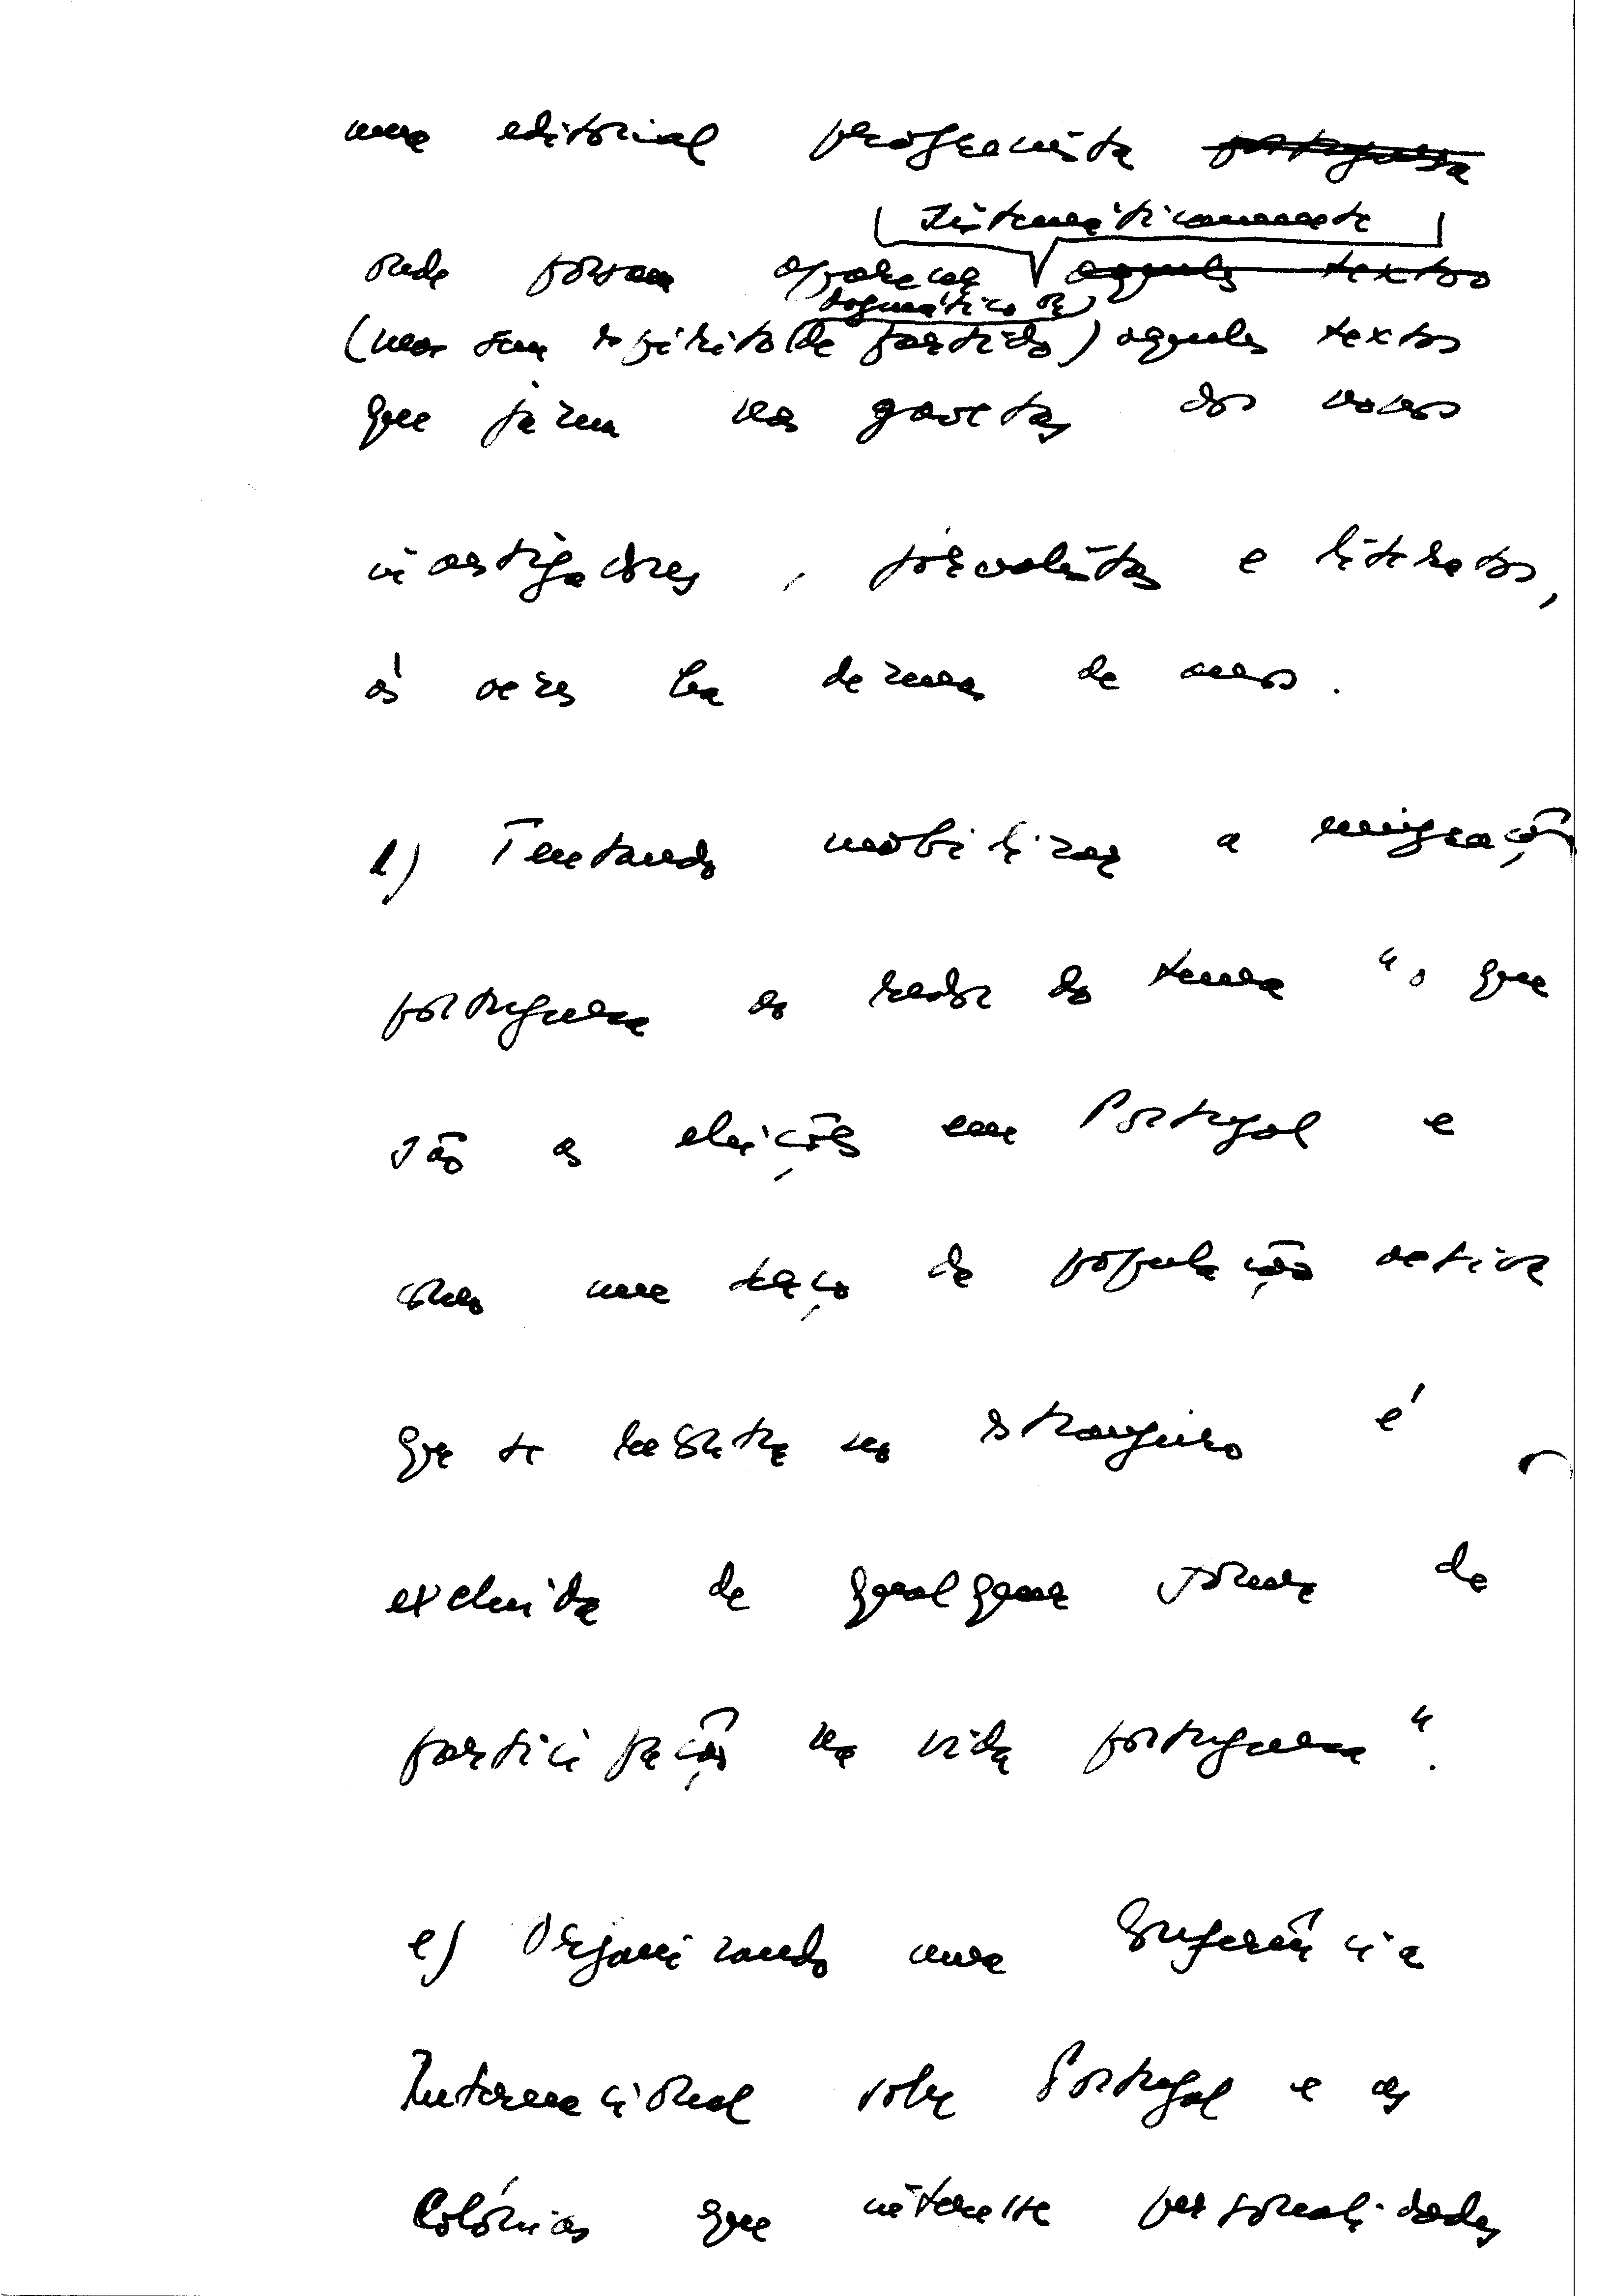 uma editorial progressista portuguesa
sistemáticamente
onde possam aparecer aqueles textos
dogmático ou
(mas sem espírito de partido) aqueles textos
que jazem nas gavetas dos nossos
investigadores, jornalistas e literatos,
às vezes há dezenas de anos.
d) Tentando mobilizar a emigração
portuguesa ao redor do tema "o que
são as eleições em Portugal e
como um terço da população activa
que se encontra no estrangeiro é
excluida de qualquer forma de
participação na vida portuguesa".
e) Organizando uma Conferência
Internacional sobre Portugal e as
Colónias que interesse personalidades